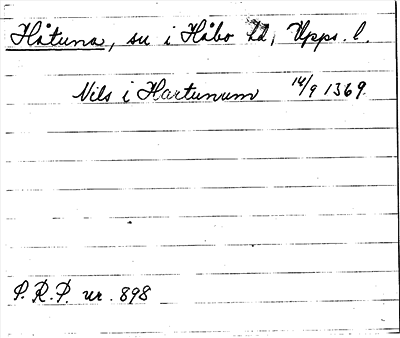 Håtuna, su i Håbo hd, Upps. l.
Nils i Hartunum 14/9 1369.
P.R.P. nr. 898